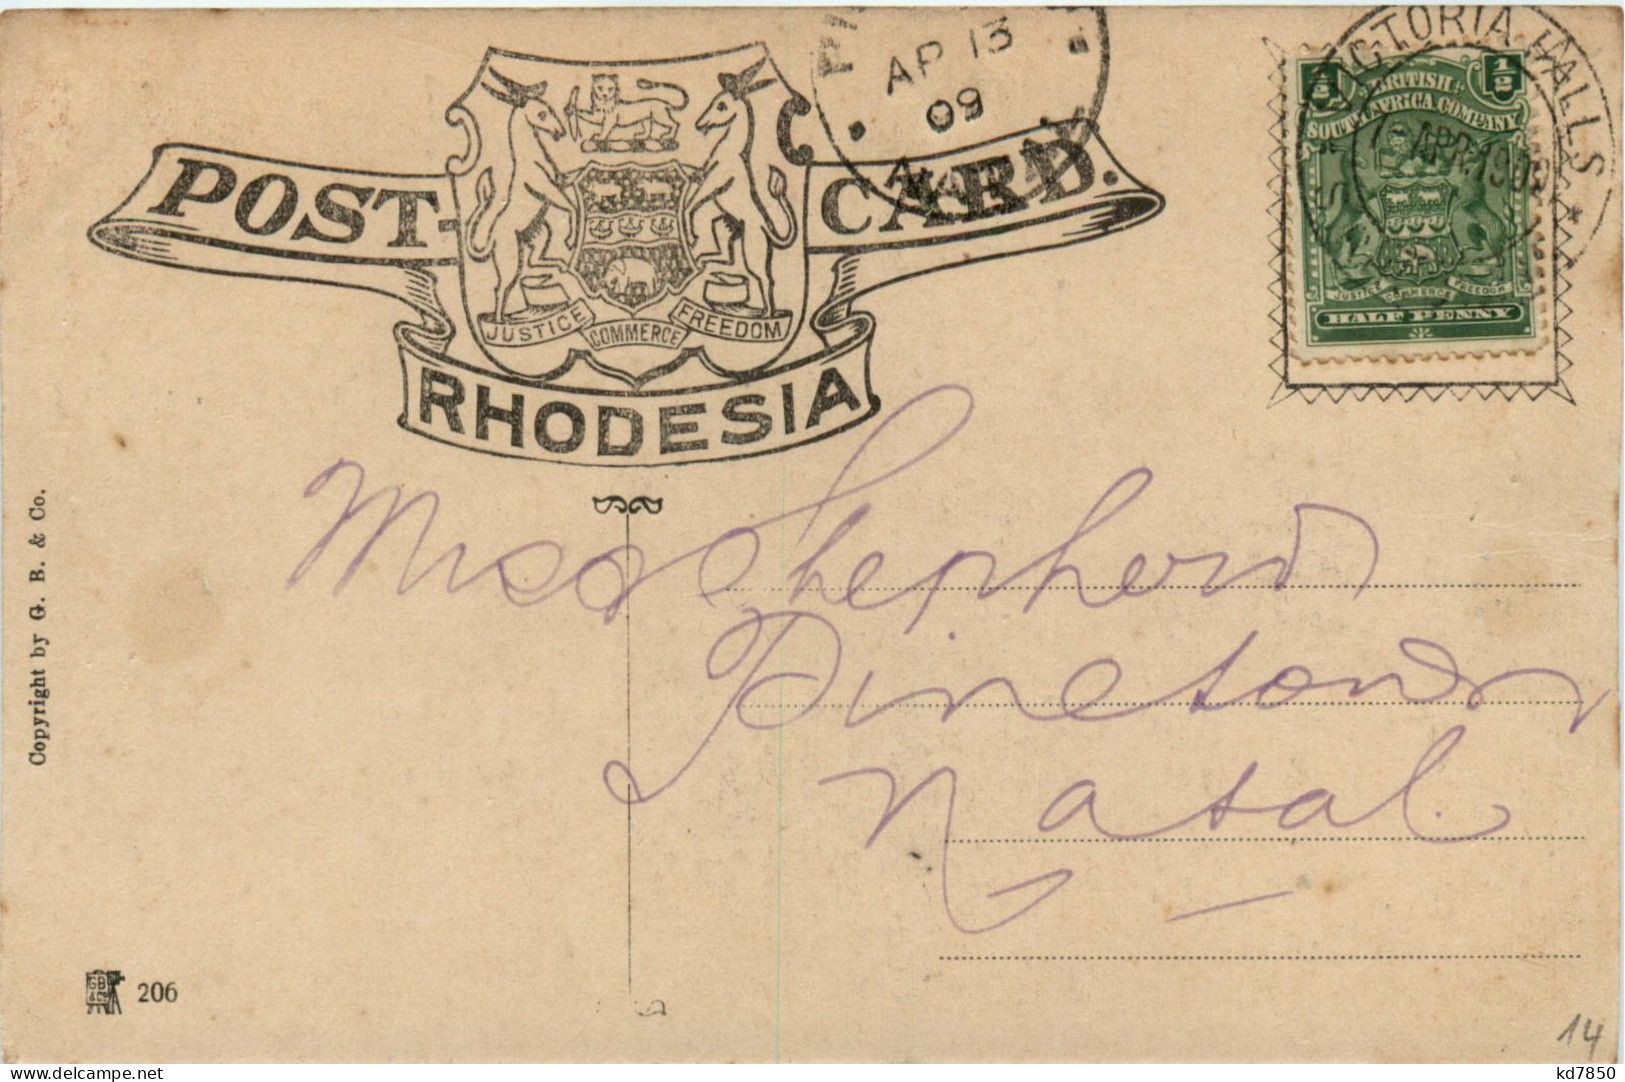 POST-CARD.
AP 13
09
NATAL
VICTORIA FALLS
APR 1909
1/2
BRITISH
SOUTH AFRICA COMPANY
JUSTICE COMMERCE FREEDOM
HALF PENNY
JUSTICE COMMERCE FREEDOM
RHODESIA
Miss Shepherd
Pinetown
Natal
Copyright by G. B. & Co.
GB & Co
206
14
delcampe.net
kd7850